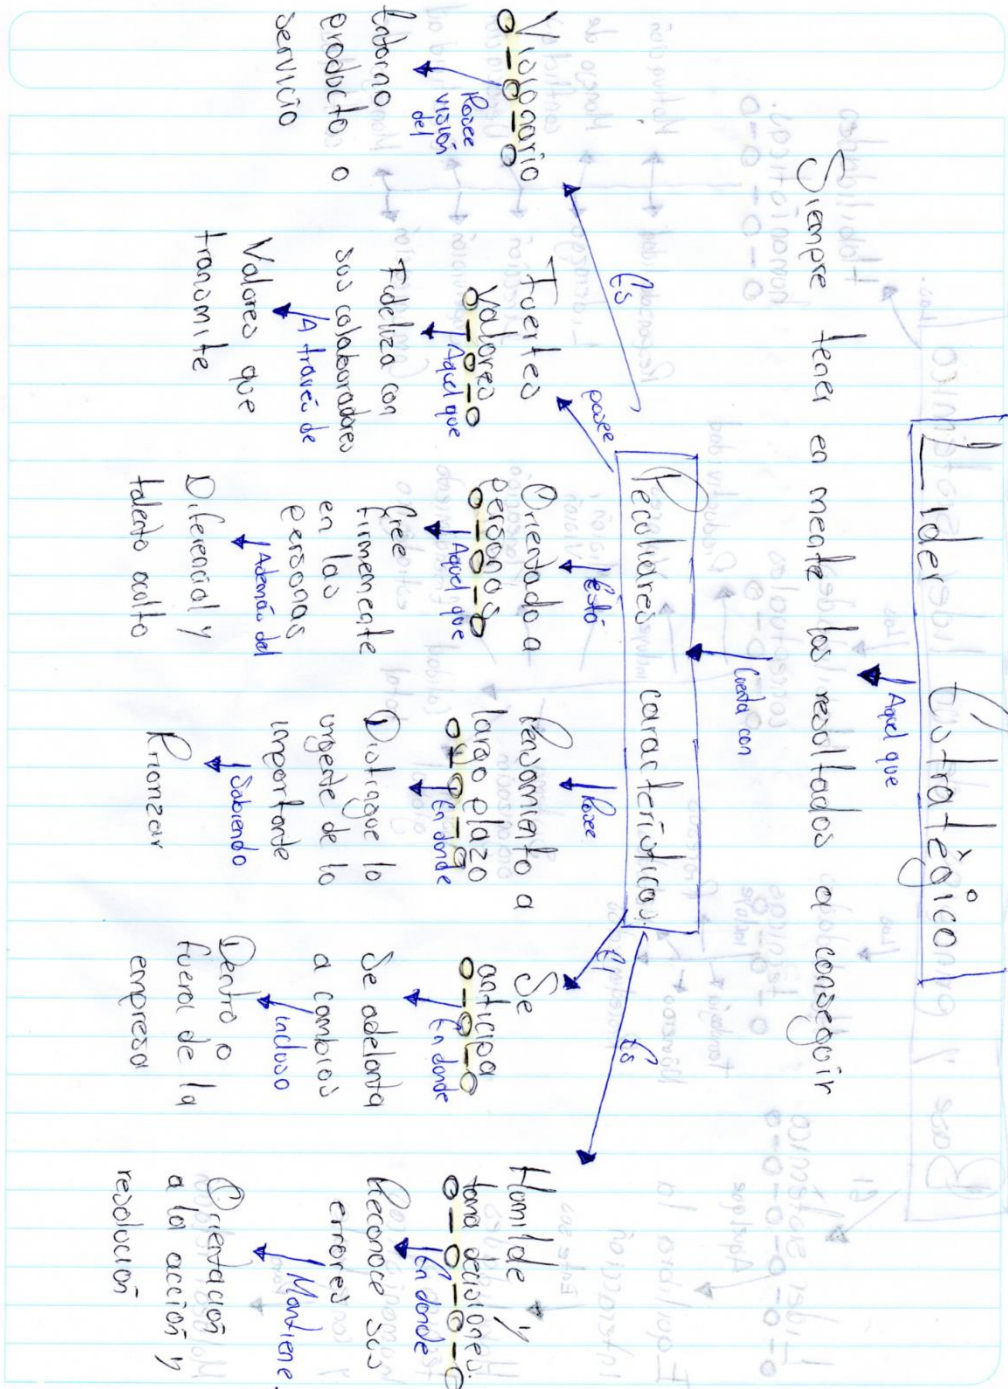 Líder Estratégico
Aquel que
Siempre tener en mente los resultados a conseguir
Cuenta con
Peculiares características.
Es
posee
Está
Posee
El
Es
Visionario
Posee
visión
del
Entorno
producto o
servicio
Fuertes
valores
Aquel que
Fideliza con
sus colaboradores
A través de
Valores que
transmite
Orientado a
personas
Aquel que
Cree
firmemente
en las
personas
Además del
Diferencial y
talento oculto
Pensamiento a
largo plazo
En donde
Distingue lo
urgente de lo
importante
Sabiendo
Priorizar
Se
anticipa
En donde
Se adelanta
a cambios
incluso
Dentro o
fuera de la
empresa
Humilde y
toma decisiones.
En donde
Reconoce sus
errores y
Mantiene.
Orientación
a la acción y
resolución